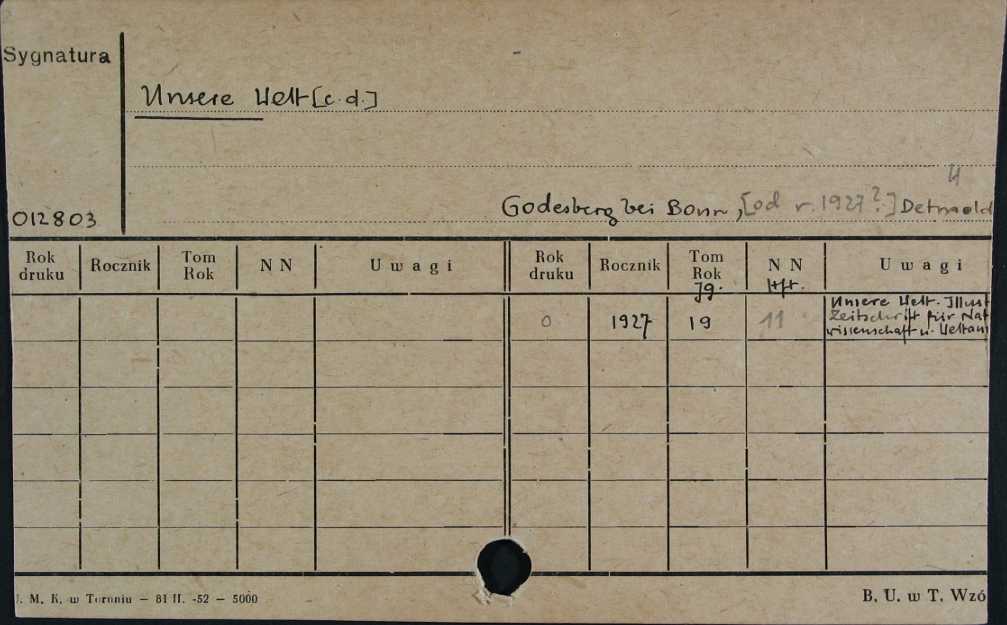 Sygnatura
Unsere Welt [c.d.]
4
Godesberg bei Bonn, [od r. 1927?] Detmold
012803
Rok druku Rocznik Tom Rok N N Uwagi Rok druku Rocznik Tom Rok N N Uwagi
Jg. Hft.
0 1927 19 11 Unsere Welt. Illust
Zeitschrift für Nat
wissenschaft u. Weltan
U. M. K. w Toruniu — 81 II. -52 — 5000 B. U. w T. Wzó